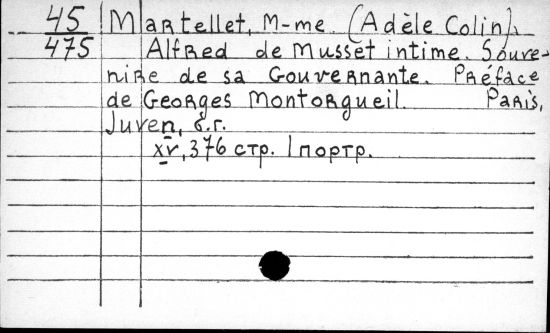 45 Martellet, M-me. (Adèle Colin).
475 Alfred de Musset intime. Souve-
nire de sa Gouvernante. Préface
de Georges Montorgueil. Paris,
Juven, б.г.
xv, 376 стр. 1 портр.